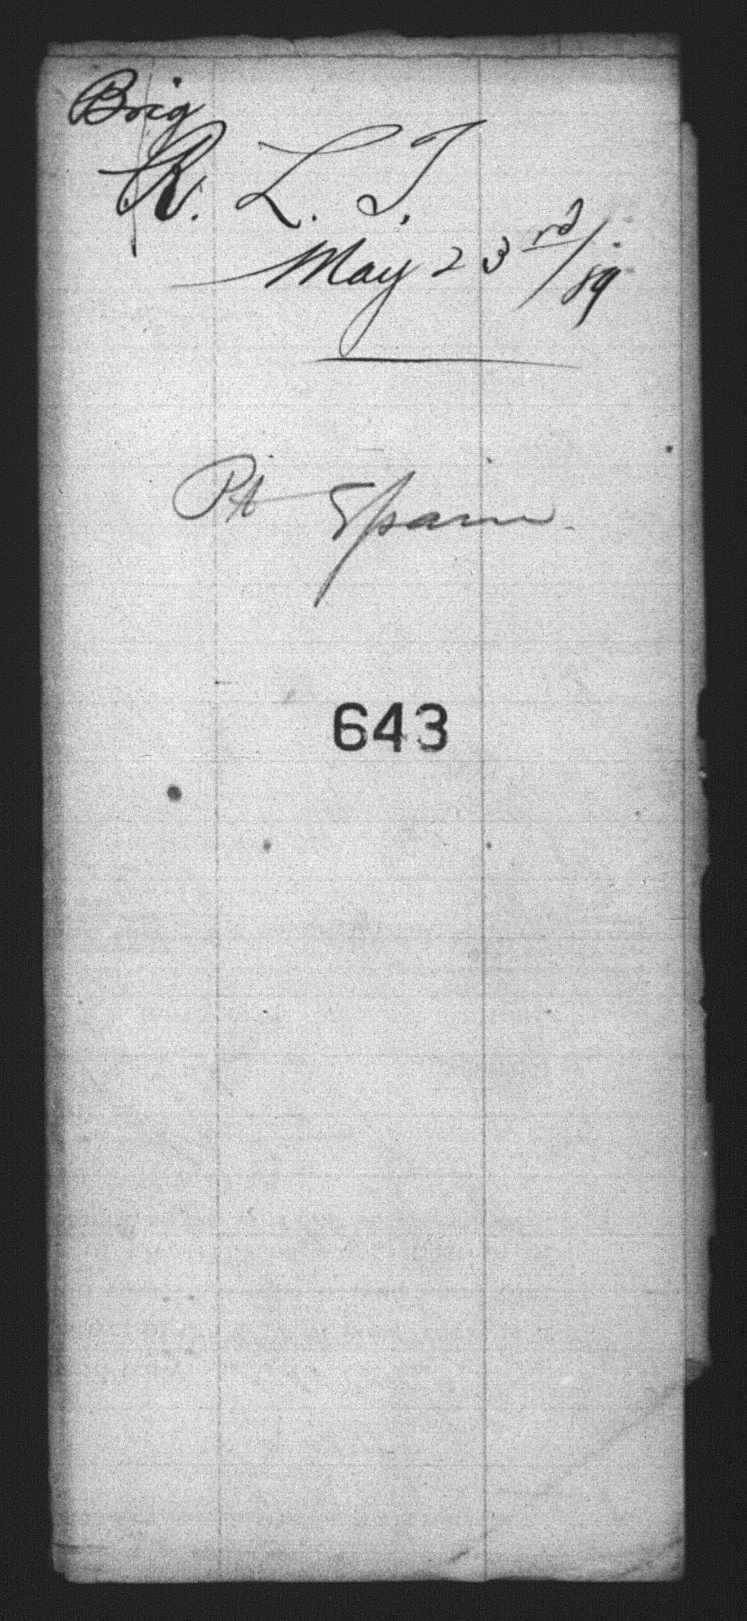 Brig
R. L. T.
May 23rd/89
Pt Spain.
643